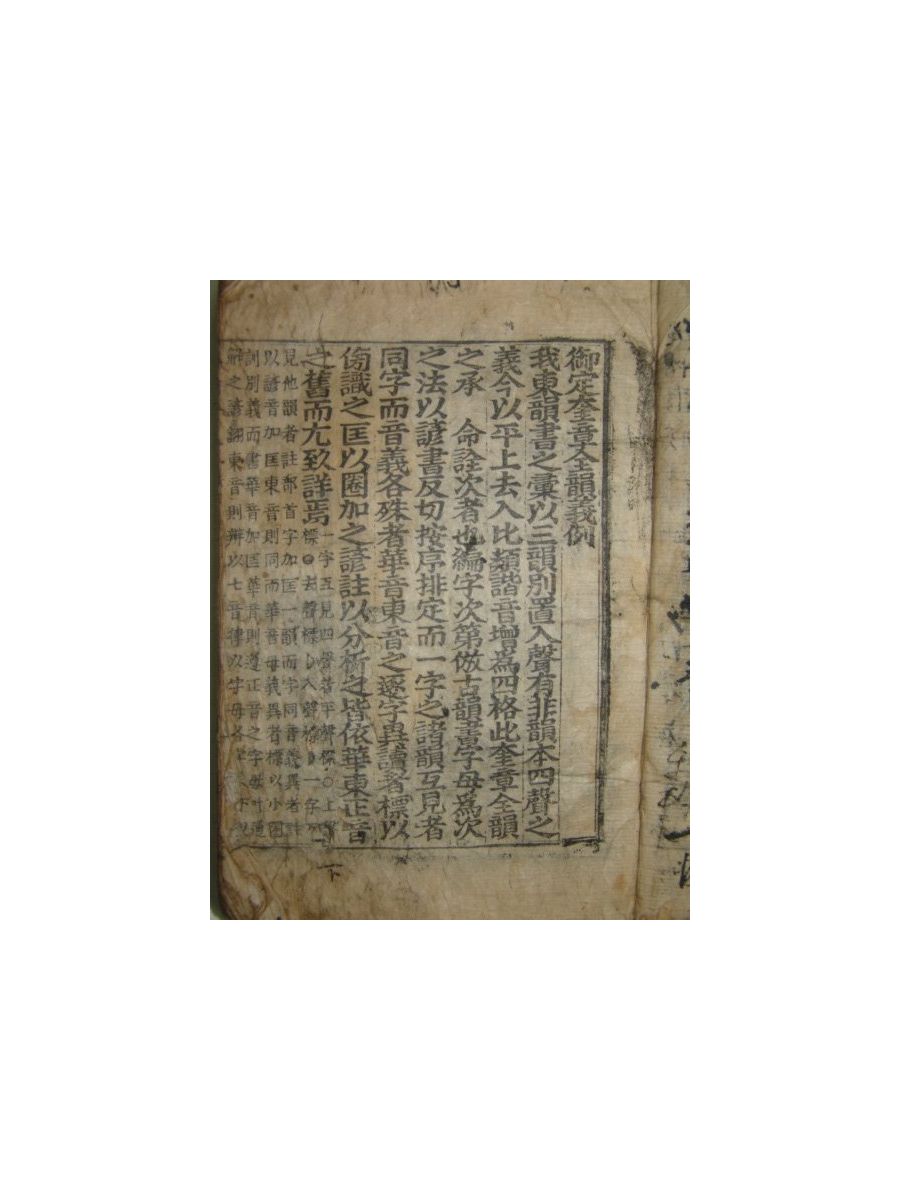 御定奎章全韻義例
我東韻書之彙以三韻別置入聲有非韻本四聲之
義今以平上去入比類諧音增為四格此奎章全韻
之承　命詮次者也編字次第倣古韻書字母爲次
之法以諺書反切按序排定而一字之諸韻互見者
同字而音義各殊者華音東音之逐字異讀者標以
傍識之匡以圈加之諺註以分析之皆依華東正音
之舊而尤致詳焉
一字互見四聲者平聲標○上聲
標 去聲標 入聲標 一字
見他韻者註部首字加匡一韻而字同音義異者註
以諺音加匡東音則同而華音母義異者標以小圈
訓別義而書華音加匡華音則遵正音之字母叶通
解之諺翻東音則辨以七音律以字母各
下